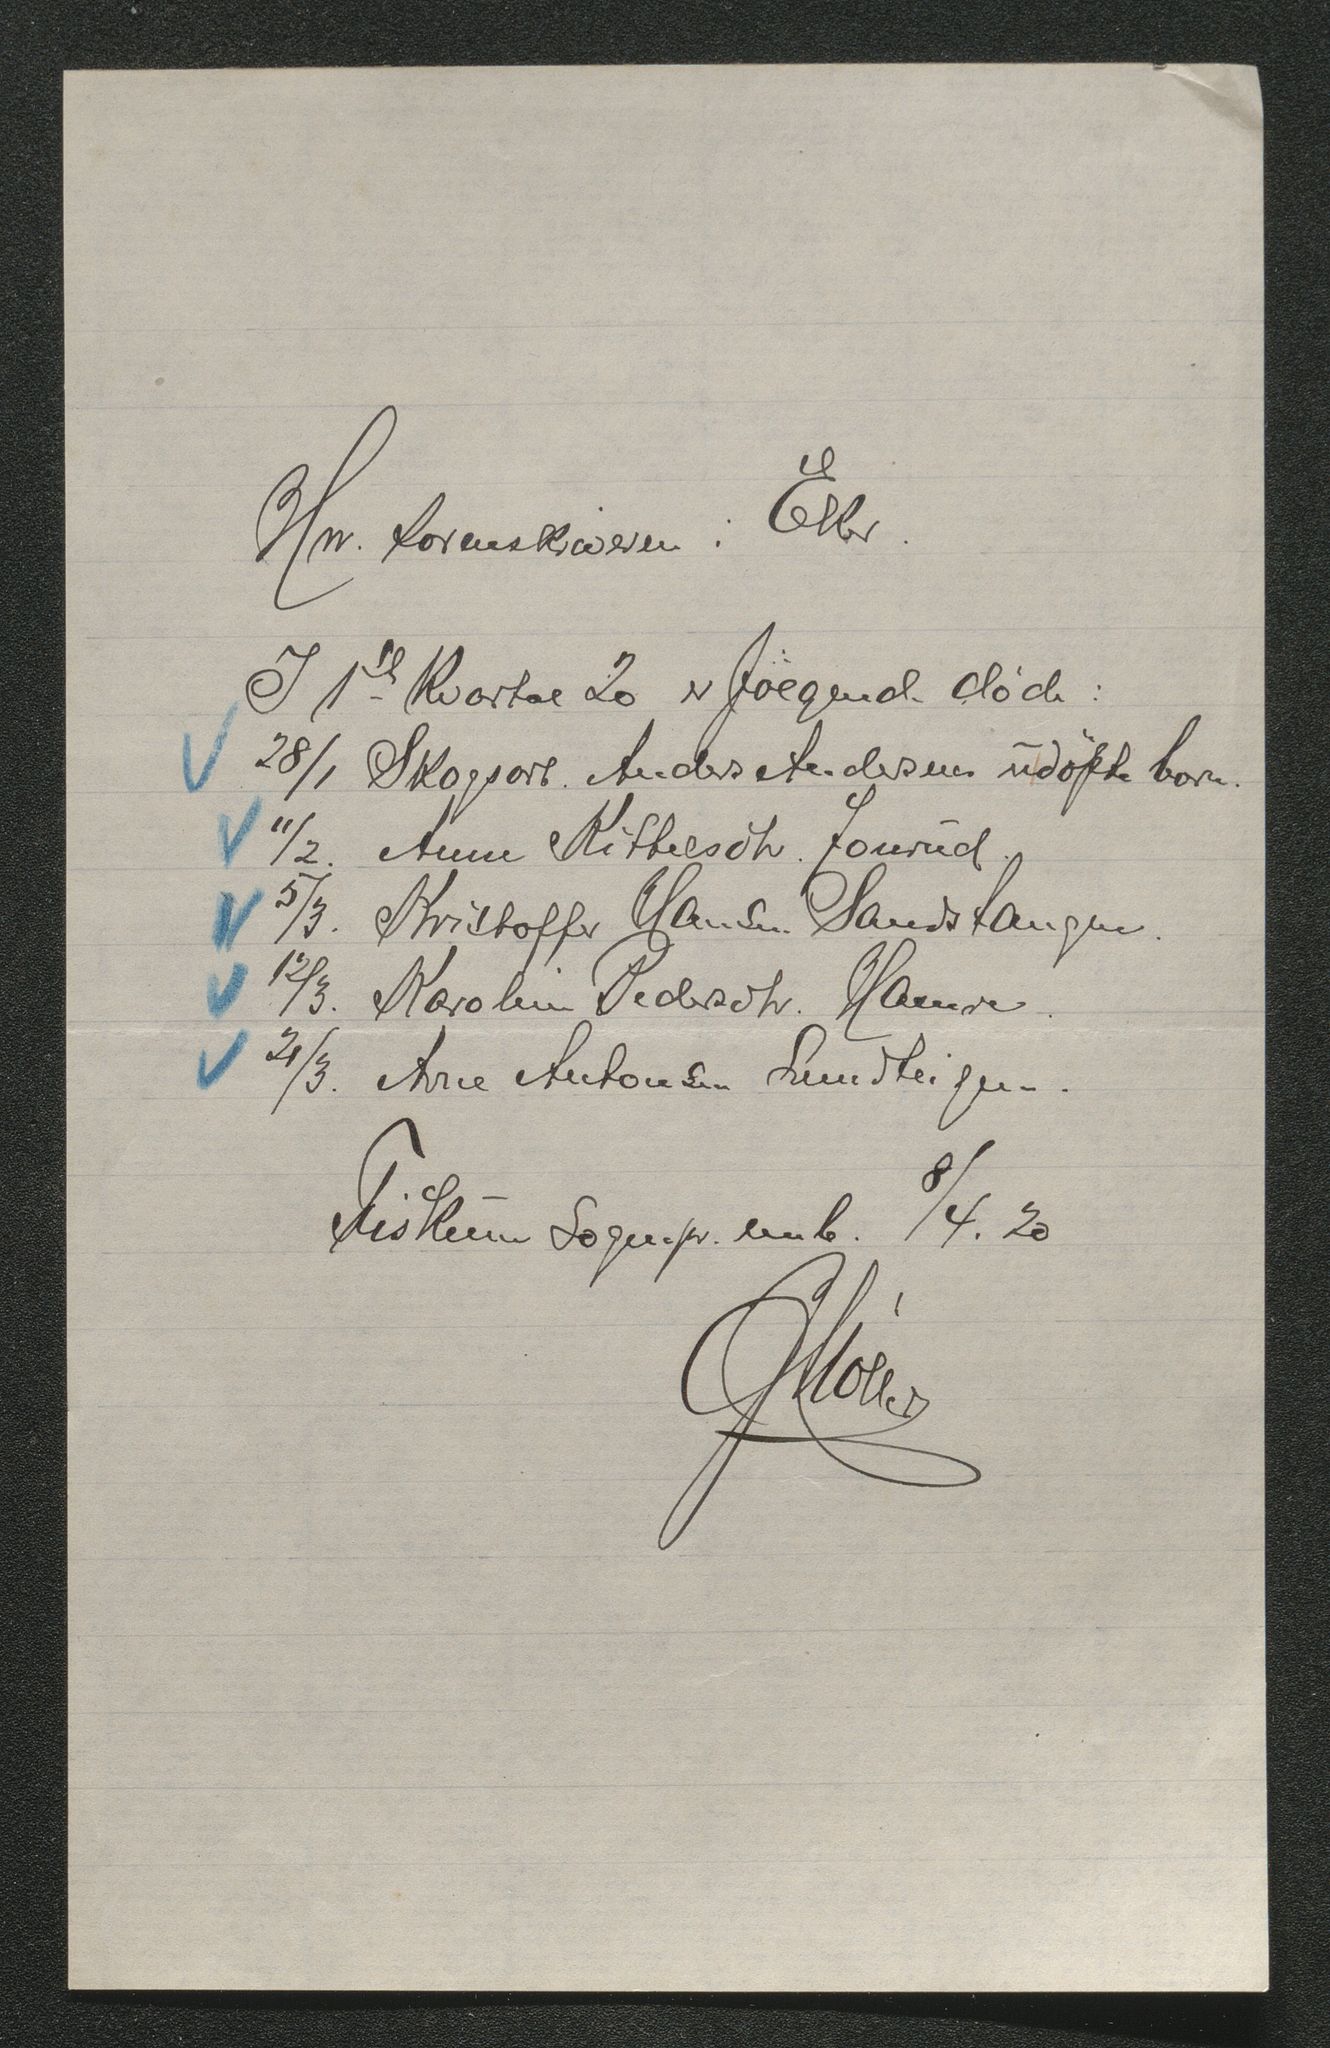 Hr. sorenskriveren i Eker.
I 1ste Kvartal 20 er följend. död:
28/1 Skogsarb. Anders Andersens udöpte barn.
11/2. Anne Kittelsdtr.
5/3. Kristoffer Hansen Sandstangen.
12/3. Karoline Pedersdtr. Hamre.
21/3. Arne Antonsen Sundteigen.
Fiskum Sognepr. emb. 8/4. 20
Möller